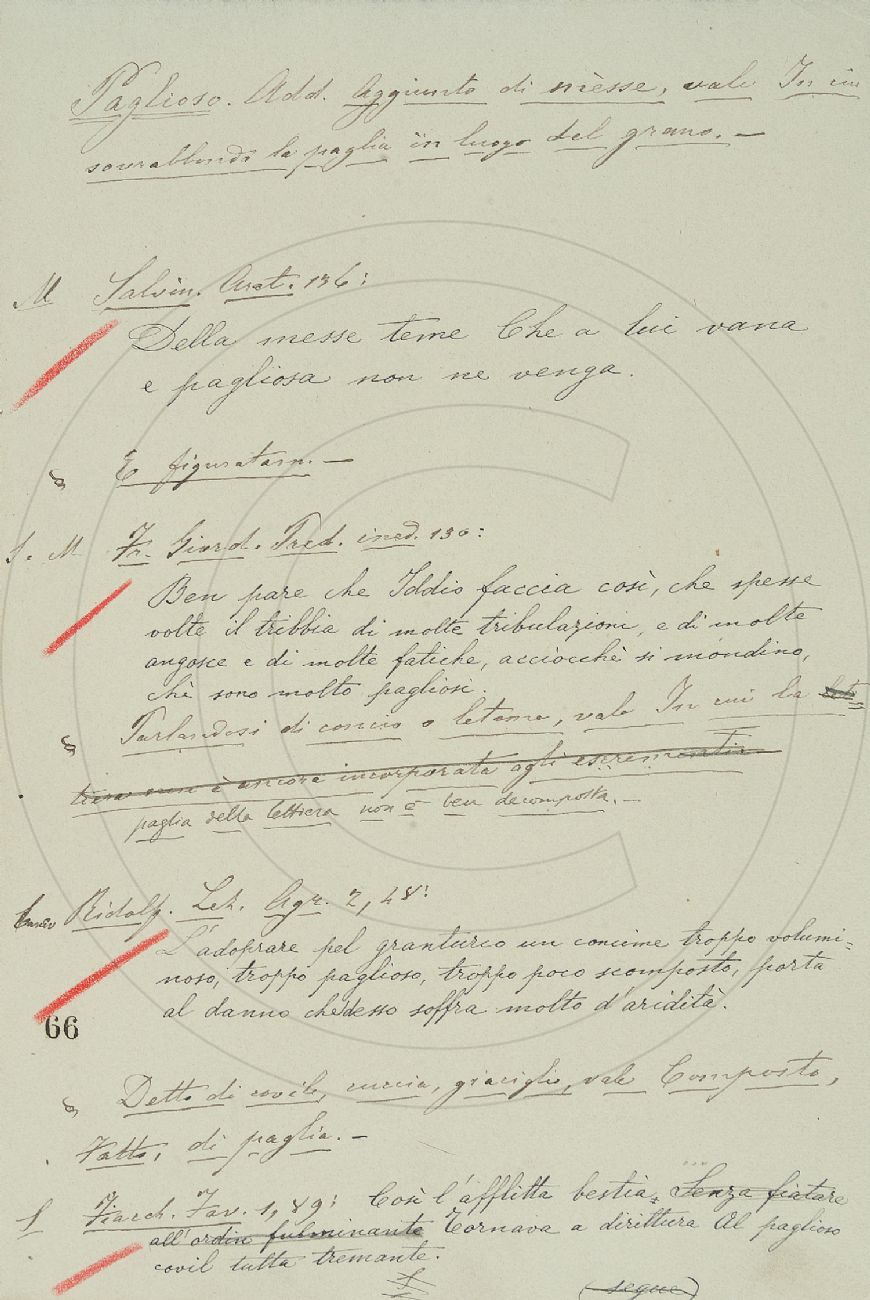 Paglioso. Add. Aggiunto di mèsse, vale In cui
sovrabbondi la paglia in luogo del grano. —
M Salvin. Arat. 136:
Della messe teme Che a lui vana
e pagliosa non ne venga.
§ E figuratam. —
S. M Fr. Giord. Pred. ined. 130:
Ben pare che Iddio faccia così, che spesse
volte il tribbia di molte tribulazioni, e di molte
angosce e di molte fatiche, acciocchè si mondino,
chè sono molto pagliosi.
§ Parlandosi di concio o letame, vale In cui la
non è ancora incorporata agli escrementi
paglia della lettiera non è ben decomposta. —
Ridolf. Lez. Agr. 2, 48:
L'adoprare pel granturco un concime troppo volumi=
noso, troppo paglioso, troppo poco scomposto, porta
al danno ch'edesso soffra molto d'aridità.
66
§ Detto di covile, cuccia, giaciglio, vale Composto,
Fatto, di paglia. —
S Fiacch. Fav. 1, 89: Così l'afflitta bestia, Senza fiatare
all'ordin fulminante Tornava a dirittura Al paglioso
covil tutta tremante.
S
(segue)